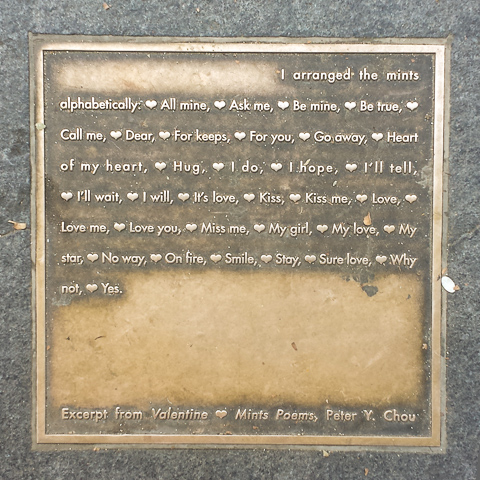 I arranged the mints
alphabetically: ❤ All mine, ❤ Ask me, ❤ Be mine, ❤ Be true, ❤
Call me, ❤ Dear, ❤ For keeps, ❤ For you, ❤ Go away, ❤ Heart
of my heart, ❤ Hug, ❤ I do, ❤ I hope, ❤ I'll tell,
❤ I'll wait, ❤ I will, ❤ It's love, ❤ Kiss, ❤ Kiss me, ❤ Love, ❤
Love me, ❤ Love you, ❤ Miss me, ❤ My girl, ❤ My love, ❤ My
star, ❤ No way, ❤ On fire, ❤ Smile, ❤ Stay, ❤ Sure love, ❤ Why
not, ❤ Yes.
Excerpt from Valentine ❤ Mints Poems, Peter Y. Chou